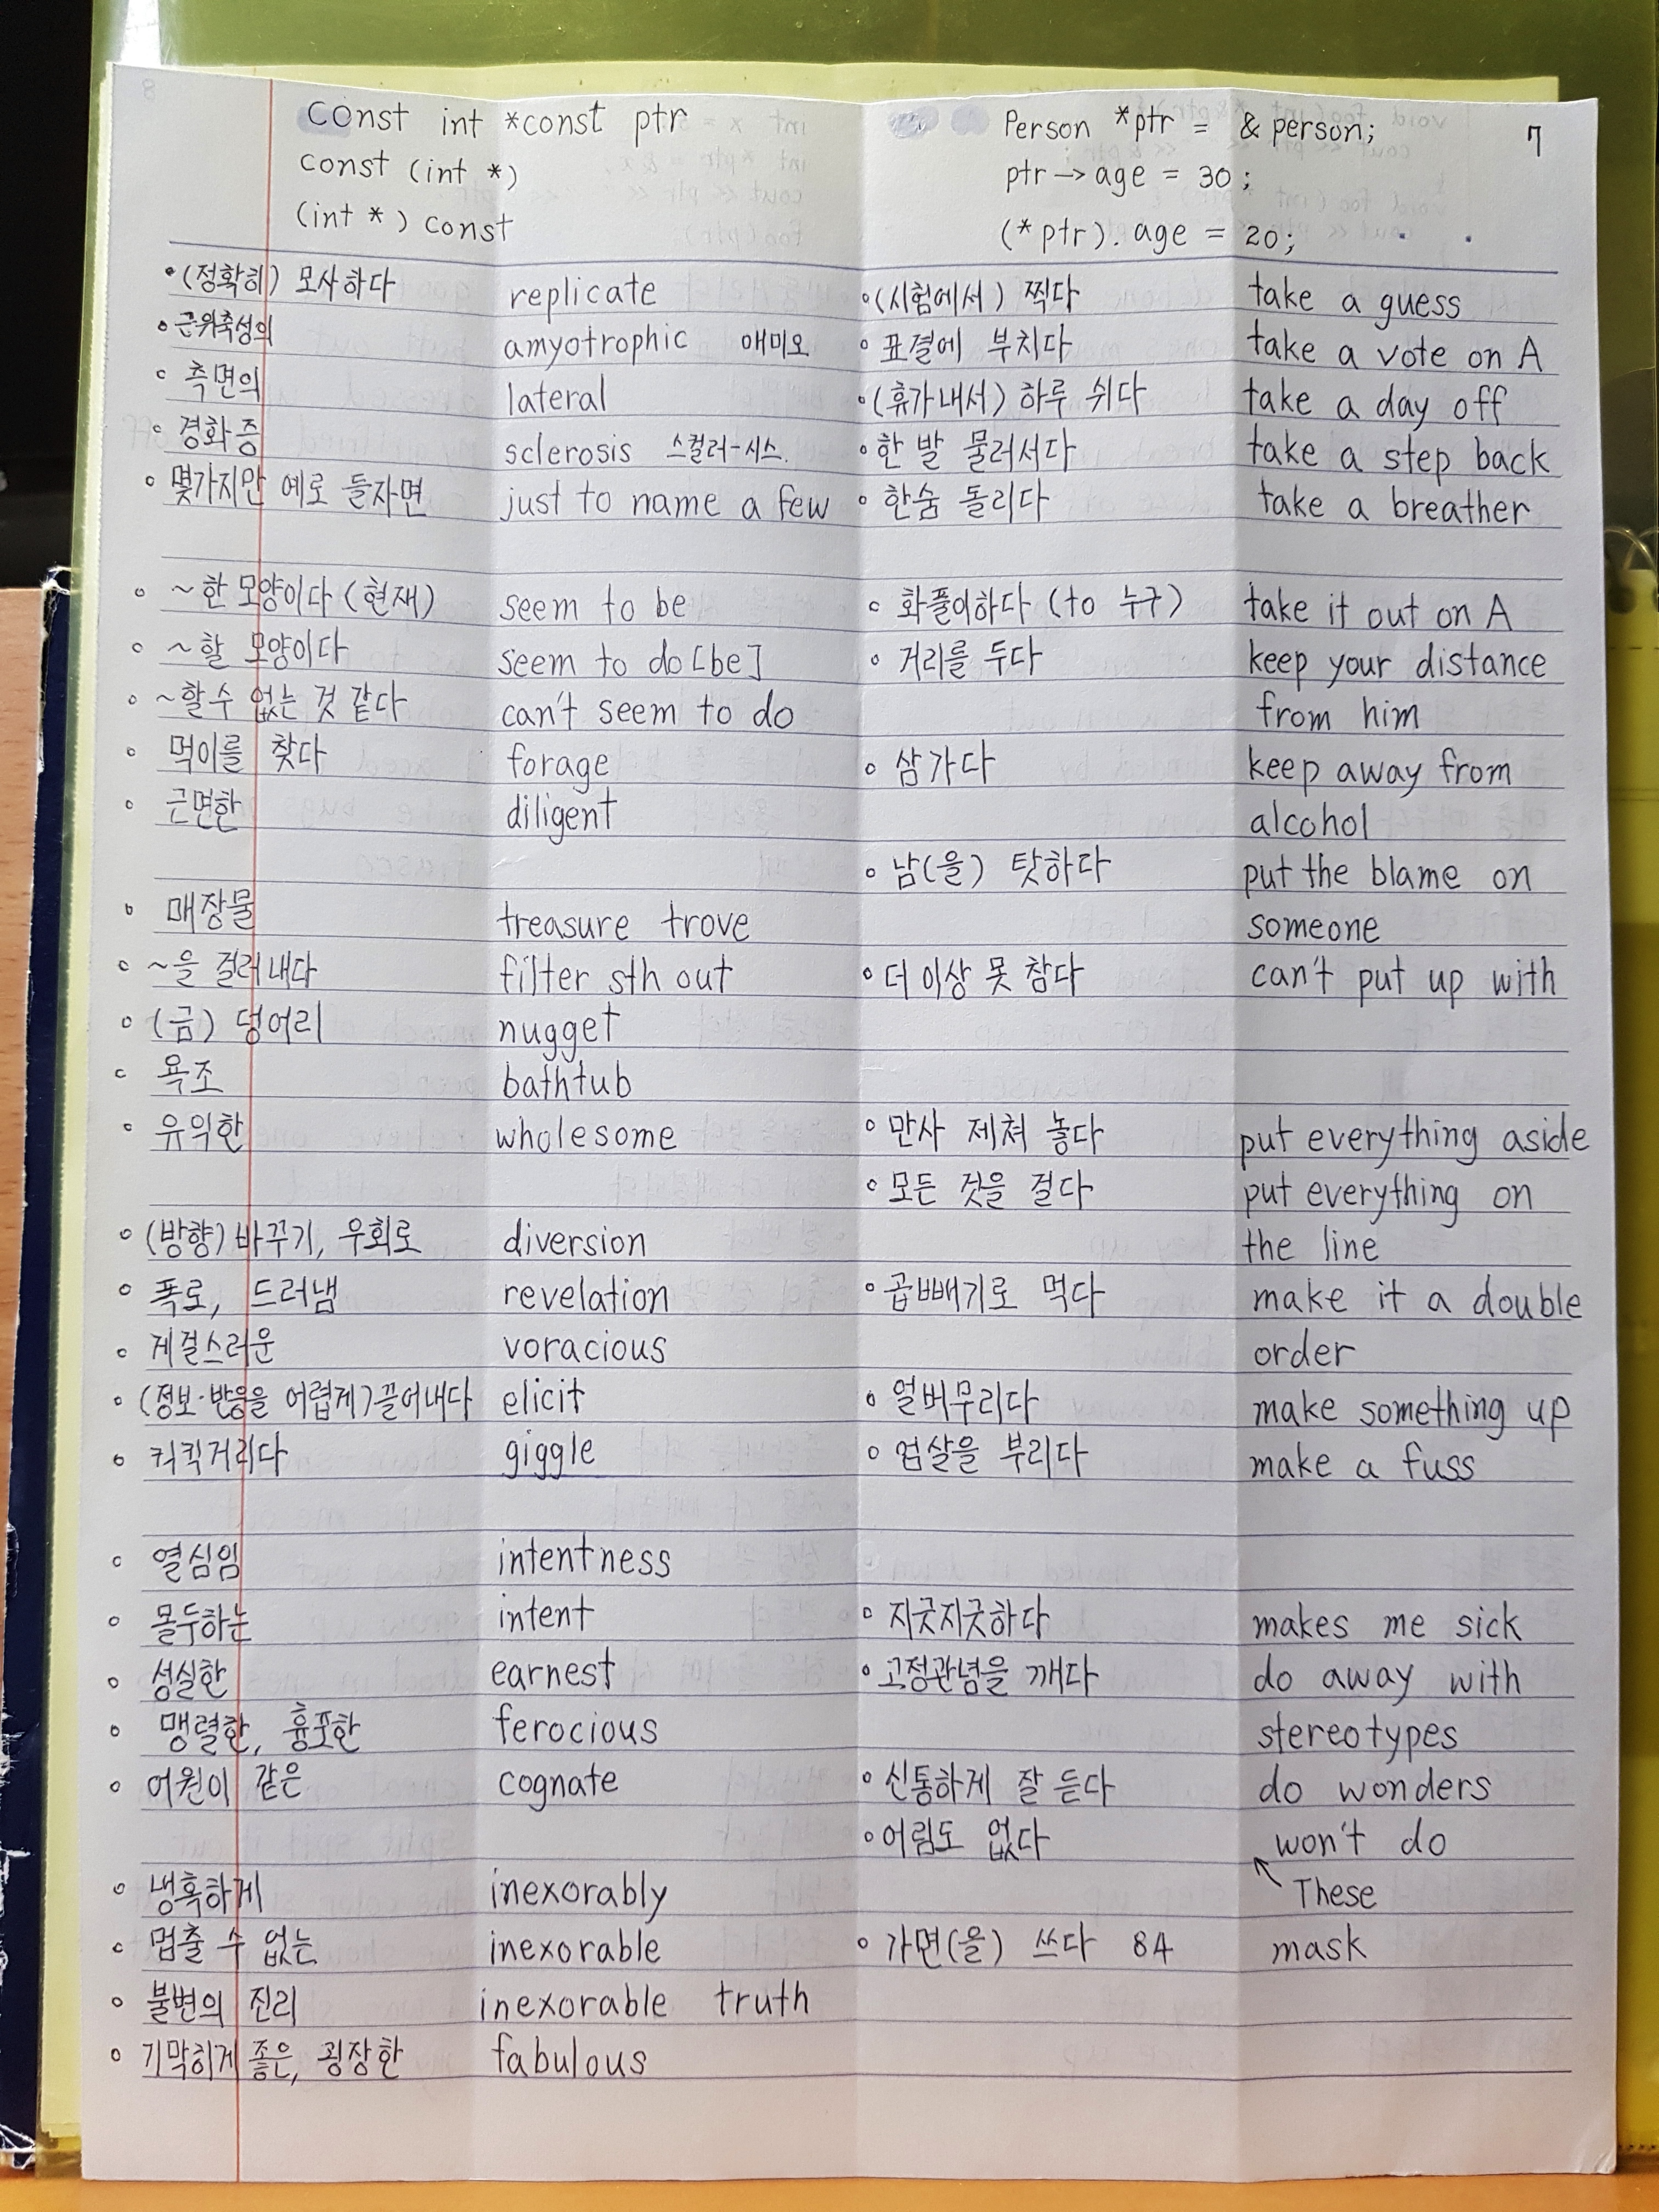 7
const int *const ptr
const (int *)
(int *) const
Person *ptr = & person;
ptr → age = 30;
(*ptr). age = 20;
• (정확히) 모사하다 replicate
• 근위축성의 amyotrophic 애미오
◦ 측면의 lateral
◦ 경화증 sclerosis 스컬러-시스.
◦ 몇가지만 예로 들자면 just to name a few
◦ ~한 모양이다 (현재) seem to be
◦ ~할 모양이다 seem to do [be]
◦ ~할 수 없는 것 같다 can't seem to do
◦ 먹이를 찾다 forage
◦ 근면한 diligent
◦ 매장물 treasure trove
◦ ~을 걸러내다 filter sth out
◦ (금) 덩어리 nugget
◦ 욕조 bathtub
◦ 유익한 wholesome
◦ (방향) 바꾸기, 우회로 diversion
◦ 폭로, 드러냄 revelation
◦ 게걸스러운 voracious
◦ (정보·반응을 어렵게) 끌어내다 elicit
◦ 킥킥거리다 giggle
◦ 열심임 intentness
◦ 몰두하는 intent
◦ 성실한 earnest
◦ 맹렬한, 흉포한 ferocious
◦ 어원이 같은 cognate
◦ 냉혹하게 inexorably
◦ 멈출 수 없는 inexorable
◦ 불변의 진리 inexorable truth
◦ 기막히게 좋은, 굉장한 fabulous
◦ (시험에서) 찍다 take a guess
◦ 표결에 부치다 take a vote on A
◦ (휴가내서) 하루 쉬다 take a day off
◦ 한 발 물러서다 take a step back
◦ 한숨 돌리다 take a breather
◦ 화풀이하다 (to 누구) take it out on A
◦ 거리를 두다 keep your distance
from him
◦ 삼가다 keep away from
alcohol
◦ 남(을) 탓하다 put the blame on
someone
◦ 더 이상 못 참다 can't put up with
◦ 만사 제쳐 놓다 put everything aside
◦ 모든 것을 걸다 put everything on
the line
◦ 곱빼기로 먹다 make it a double
order
◦ 얼버무리다 make something up
◦ 엄살을 부리다 make a fuss
◦ 지긋지긋하다 makes me sick
◦ 고정관념을 깨다 do away with
stereotypes
◦ 신통하게 잘 듣다 do wonders
◦ 어림도 없다 won't do
↖ These
◦ 가면(을) 쓰다 84 mask